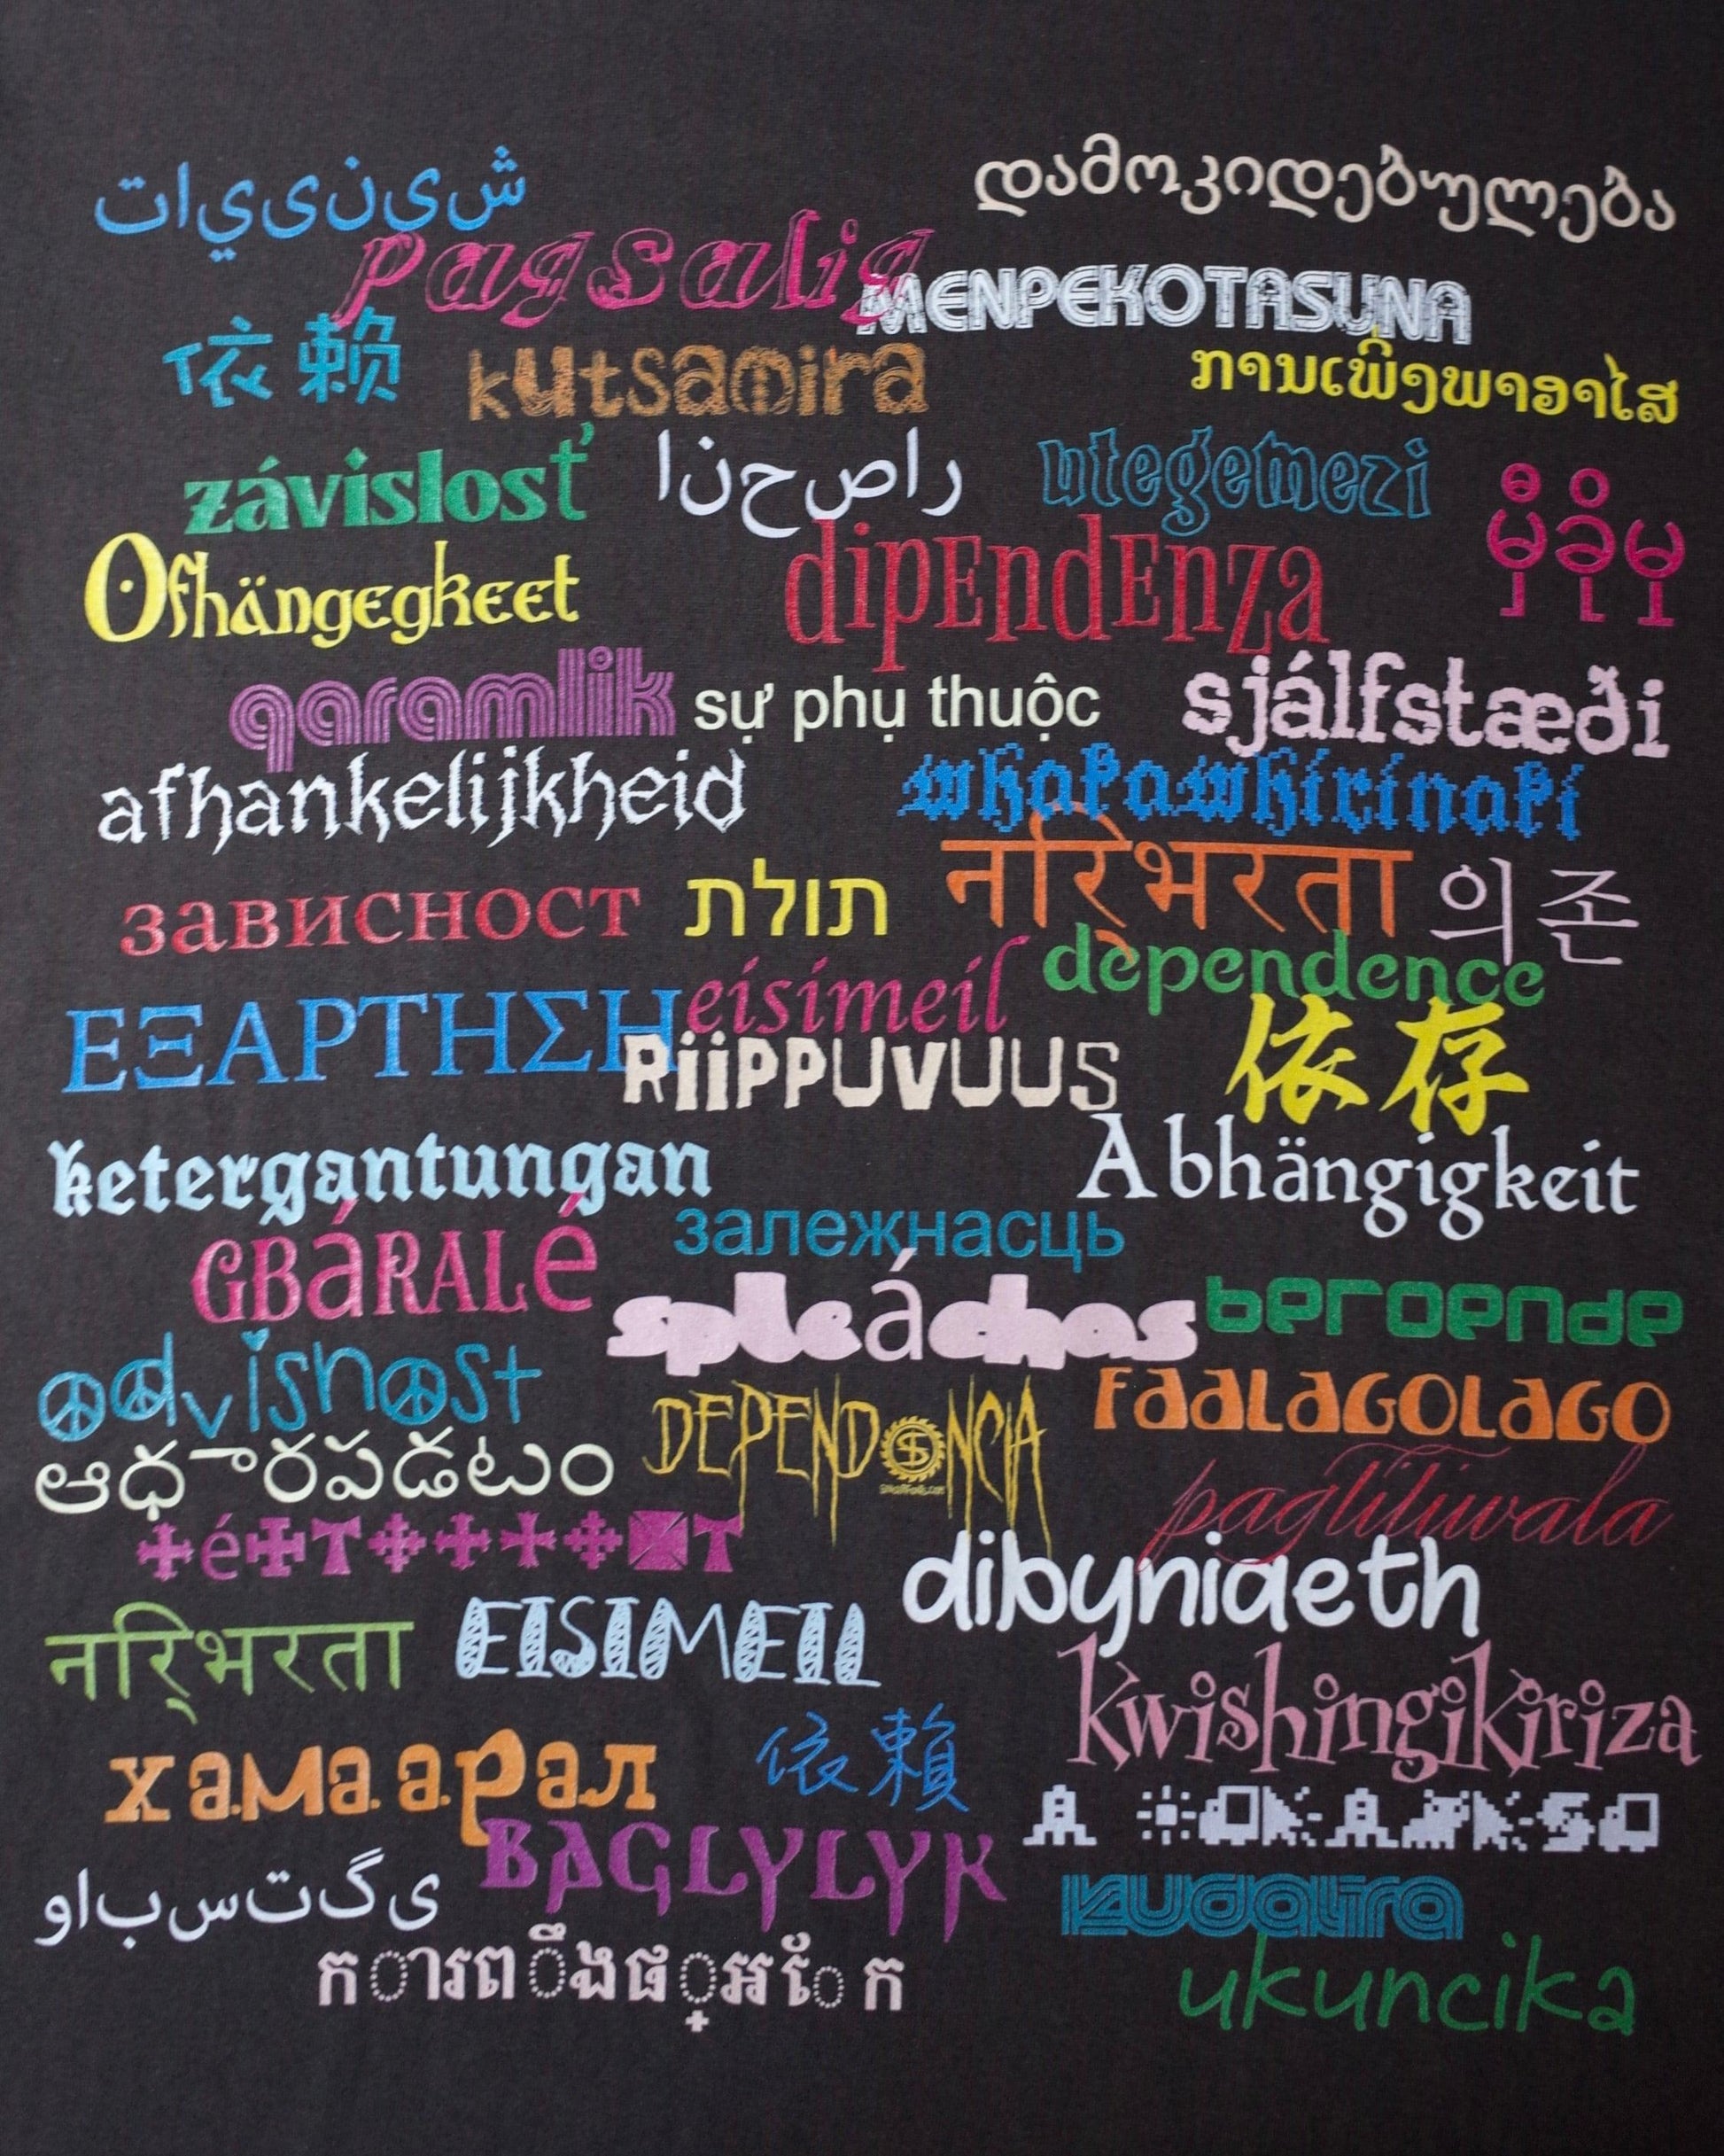 ش ی ن ی ي ا ت
დამოკიდებულება
pagsalig
MENPEKOTASUNA
依赖
kutsamira
ການເພິ່ງພາອາໄສ
závislosť
ا ن ح ص ا ر
utegemezi
မှီခိုမှု
Ofhängegkeet
dipendenza
qaramlik
sự phụ thuộc
sjálfstæði
afhankelijkheid
whakawhirinaki
зависност
תולת
नरि्भरता
의존
dependence
ΕΞΑΡΤΗΣΗ
eisimeil
Riippuvuus
依存
ketergantungan
Abhängigkeit
GBáRALé
залежнасць
spleáchas
beroende
odvisnost
FaaLaGOLaGO
ఆధారపడటం
pagtitiwala
dibyniaeth
नरि्भरता
EISIMEIL
kwishingikiriza
хамаарал
依賴
BAGLYLYK
و ا ب س ت گ ی
kudalira
ukuncika